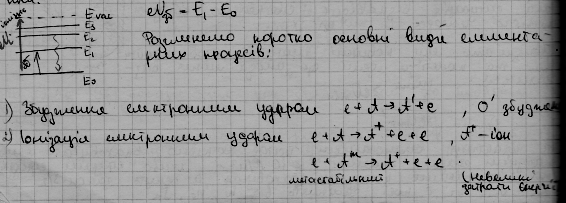 E vac
E₃
E₂
E₁
E₀
eU₃б = E₁ - E₀
Розглянемо коротко основні види елемента-
рних процесів:
1) Збудження електронним ударом e + A → A' + e ,
2) Іонізація електронним ударом e + A → A⁺ + e + e , A⁺ - іон
e + Aᵐ → A⁺ + e + e .
метастабільний (невеликі
затрати енергії